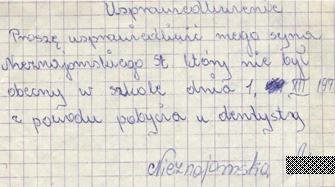 Usprawiedliwienie
Proszę usprawiedliwić mego syna
Nieznajomskiego St. który nie był
obecny w szkole dnia 1. XII 197
z powodu pobycia u dentysty
Nieznajomska